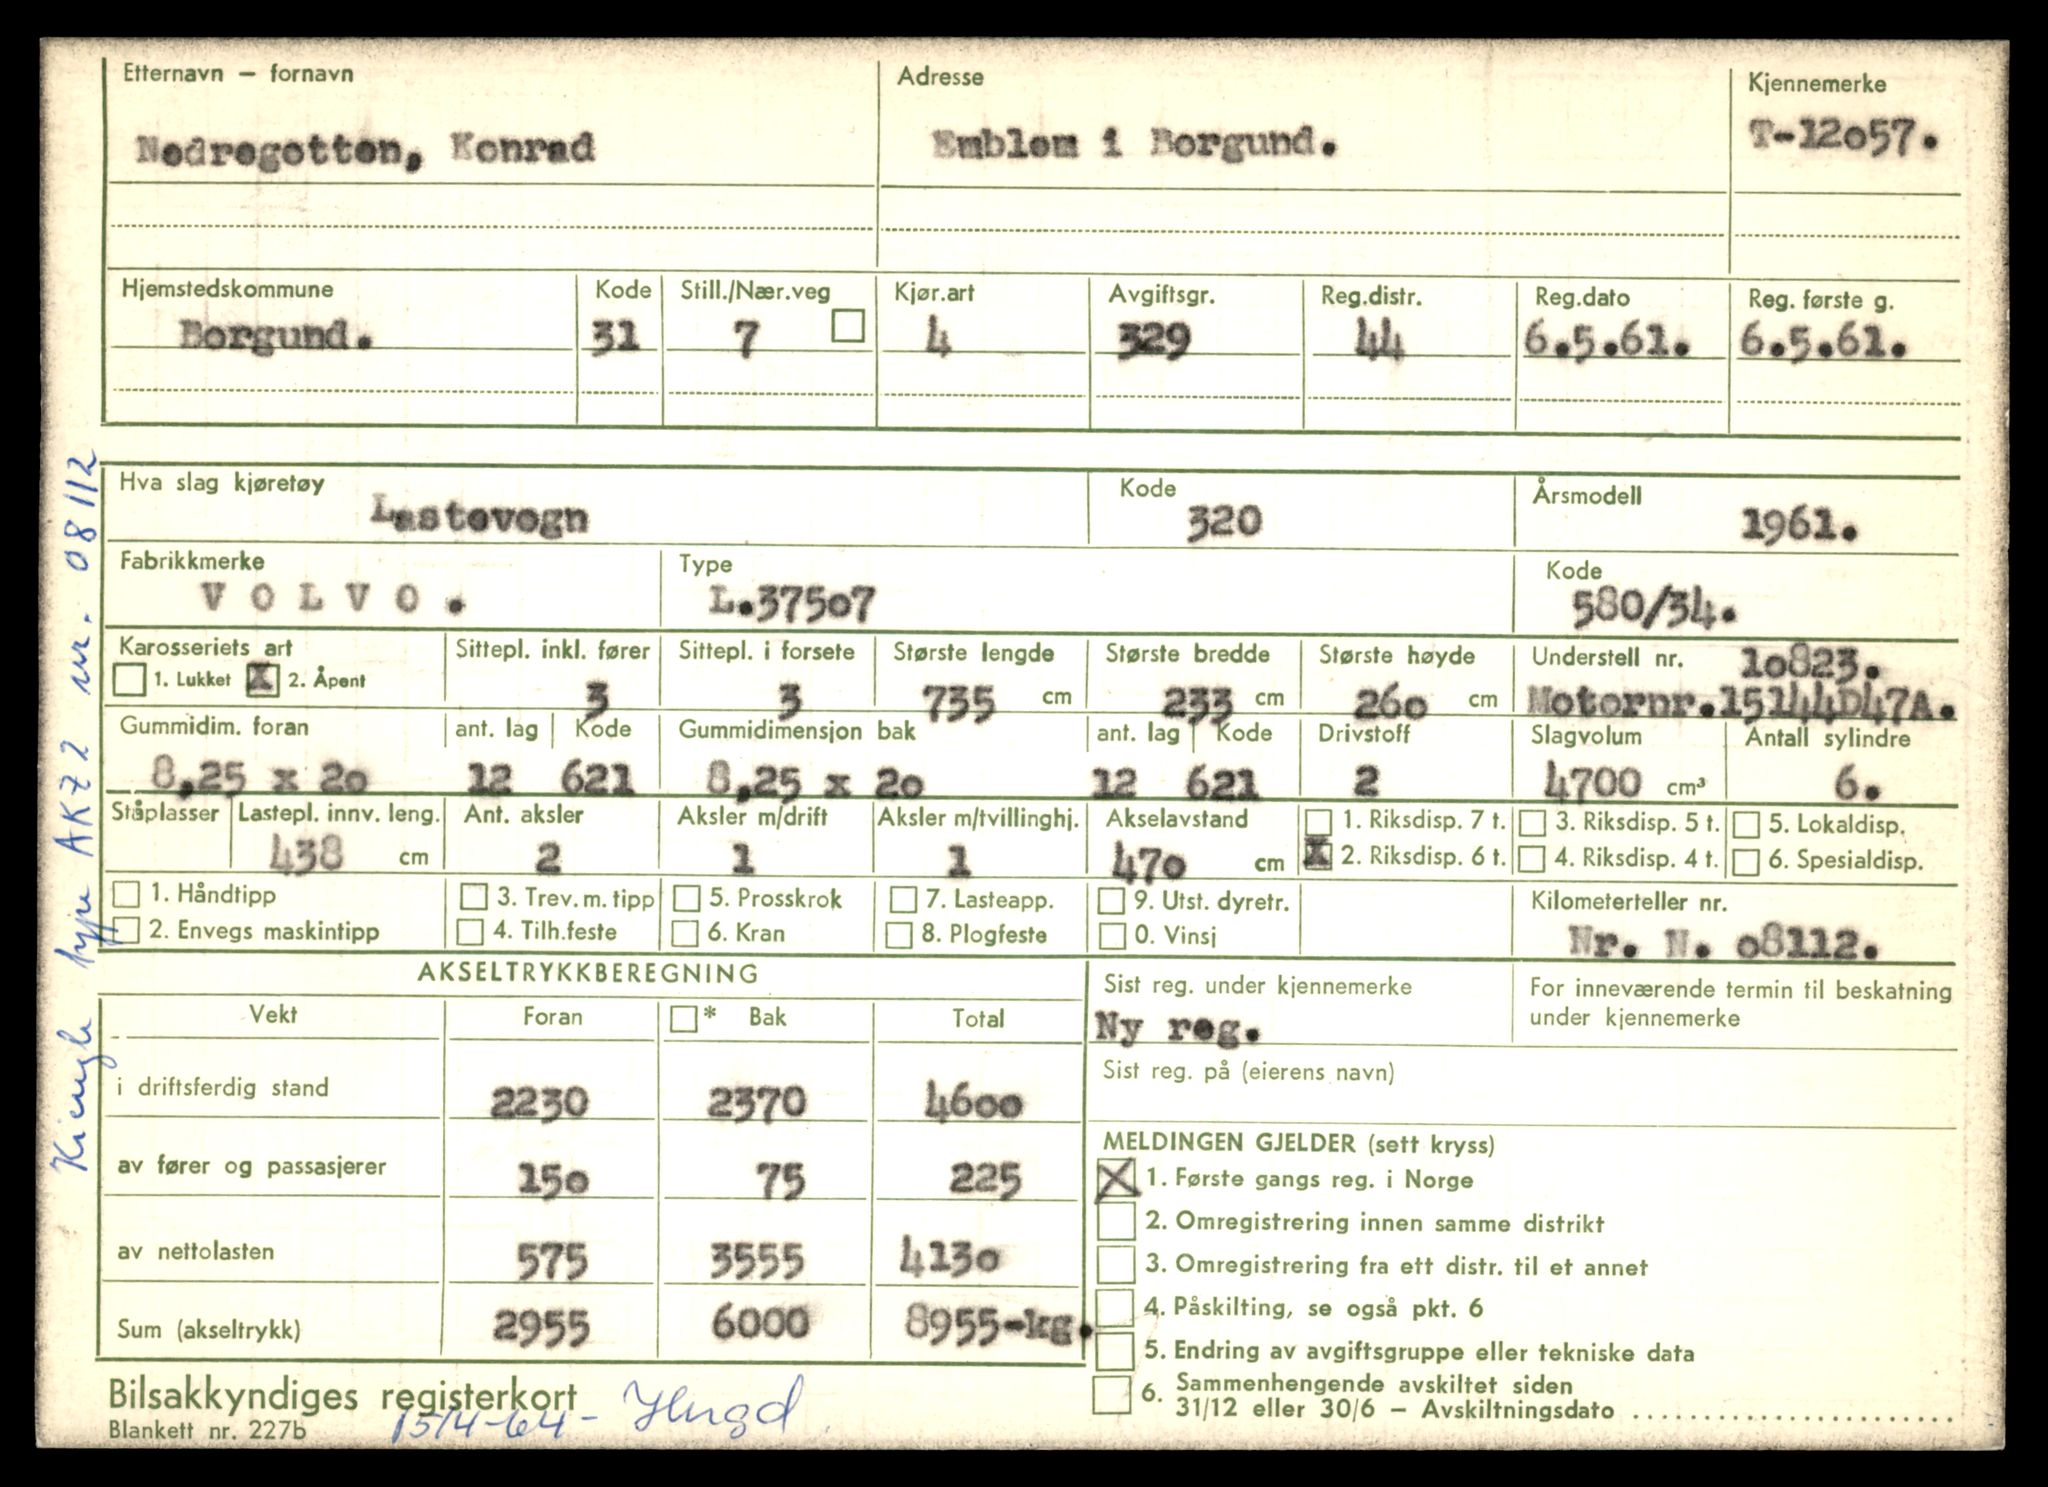 Etternavn – fornavn Adresse Kjennemerke
Nedregotten, Konrad Emblem i Borgund. T-12o57.
Hjemstedskommune Kode Still./Nær.veg Kjør.art Avgiftsgr. Reg.distr. Reg.dato Reg. første g.
Borgund. 31 7 4 329 44 6.5.61. 6.5.61.
Hva slag kjøretøy Kode Årsmodell
Lastevogn 320 1961.
Fabrikkmerke Type Kode
V O L V O . L.375o7 580/34.
Karosseriets art Sittepl. inkl. fører Sittepl. i forsete Største lengde Største bredde Største høyde Understell nr. 1o823.
1. Lukket X 2. Åpent 3 3 735 cm 233 cm 26o cm Motornr.15144D47A.
Gummidim. foran ant. lag Kode Gummidimensjon bak ant. lag Kode Drivstoff Slagvolum Antall sylindre
8,25 x 2o 12 621 8,25 x 2o 12 621 2 4700 cm³ 6.
Ståplasser Lastepl. innv. leng. Ant. aksler Aksler m/drift Aksler m/tvillinghj. Akselavstand 1. Riksdisp. 7 t. 3. Riksdisp. 5 t. 5. Lokaldisp.
438 cm 2 1 1 47o cm X 2. Riksdisp. 6 t. 4. Riksdisp. 4 t. 6. Spesialdisp.
1. Håndtipp 3. Trev. m. tipp 5. Prosskrok 7. Lasteapp. 9. Utst. dyretr. Kilometerteller nr.
2. Envegs maskintipp 4. Tilh.feste 6. Kran 8. Plogfeste 0. Vinsj Nr. N. o8112.
AKSELTRYKKBEREGNING Sist reg. under kjennemerke For inneværende termin til beskatning
under kjennemerke
Vekt Foran * Bak Total Ny reg.
Sist reg. på (eierens navn)
i driftsferdig stand 2230 2370 46oo
MELDINGEN GJELDER (sett kryss)
av fører og passasjerer 15o 75 225 X 1. Første gangs reg. i Norge
2. Omregistrering innen samme distrikt
av nettolasten 575 3555 413o 3. Omregistrering fra ett distr. til et annet
4. Påskilting, se også pkt. 6
Sum (akseltrykk) 2955 6000 8955-kg.
5. Endring av avgiftsgruppe eller tekniske data
6. Sammenhengende avskiltet siden
31/12 eller 30/6 – Avskiltningsdato ........................
Bilsakkyndiges registerkort
Blankett nr. 227b 15/4-64-
type AK72 nr. 08112